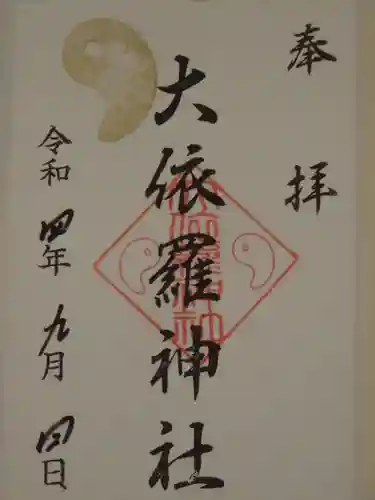 奉拝
大依羅神社
令和四年九月四日